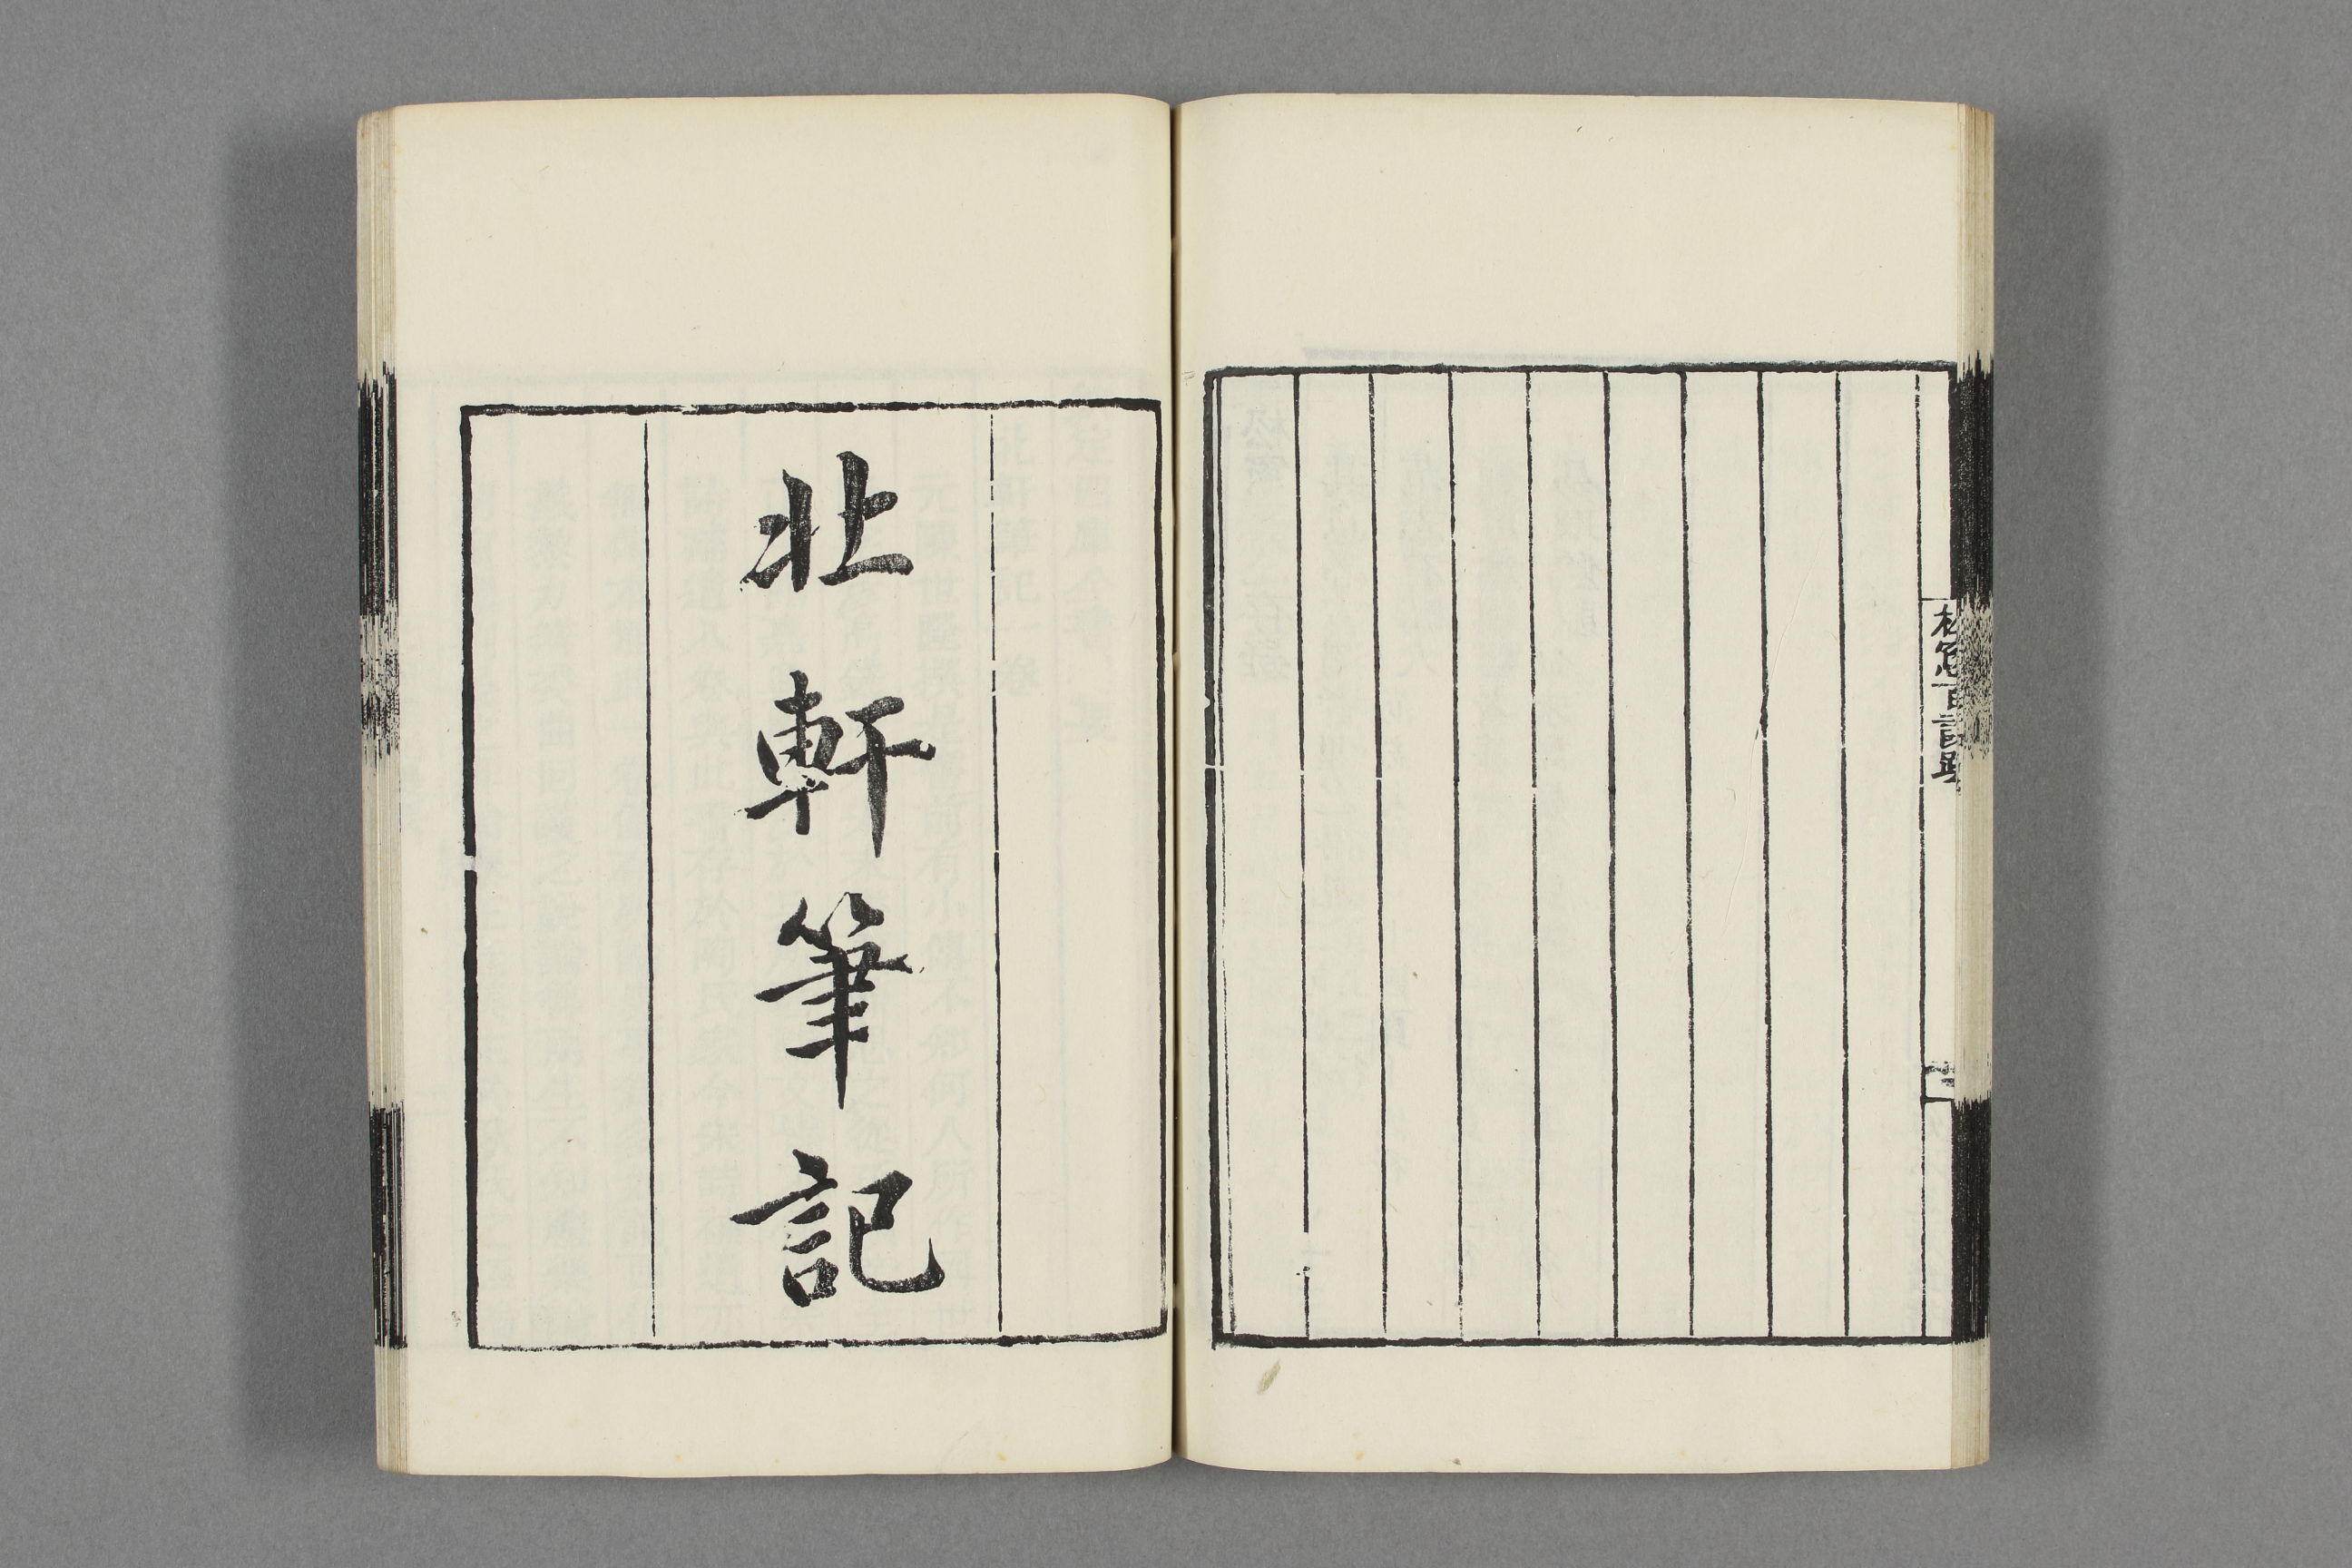 松窓百說跋
北軒筆記